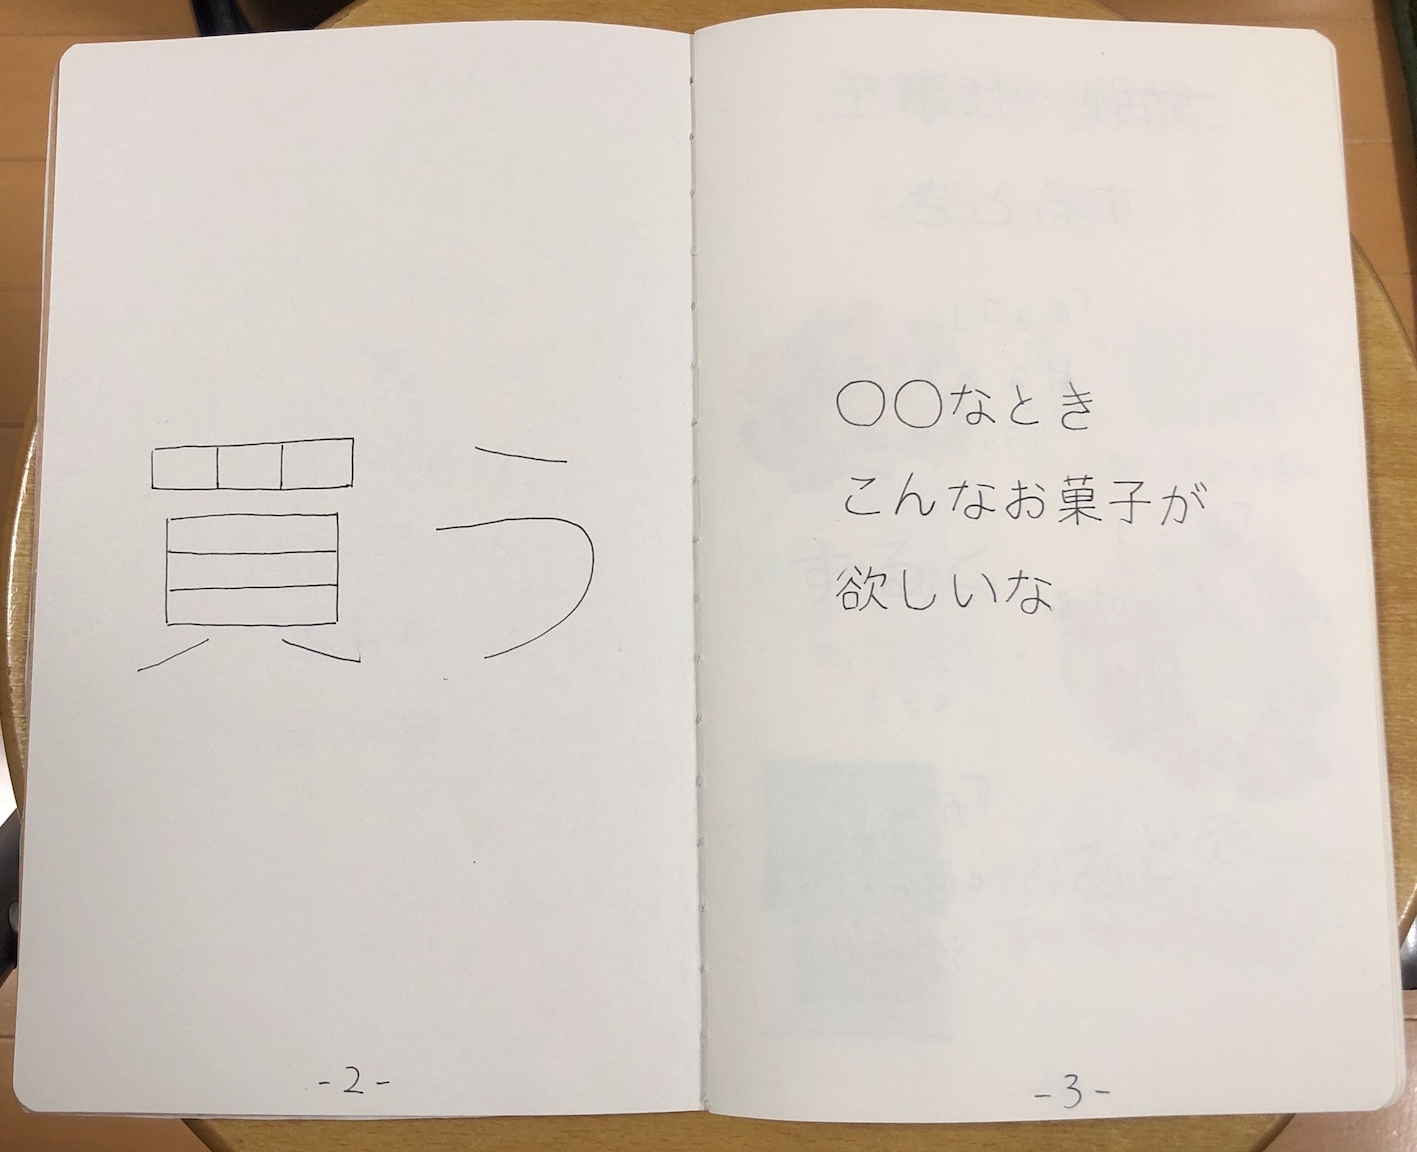 買う
-2-
〇〇なとき
こんなお菓子が
欲しいな
-3-